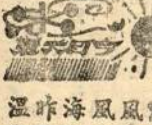 溫昨海風風